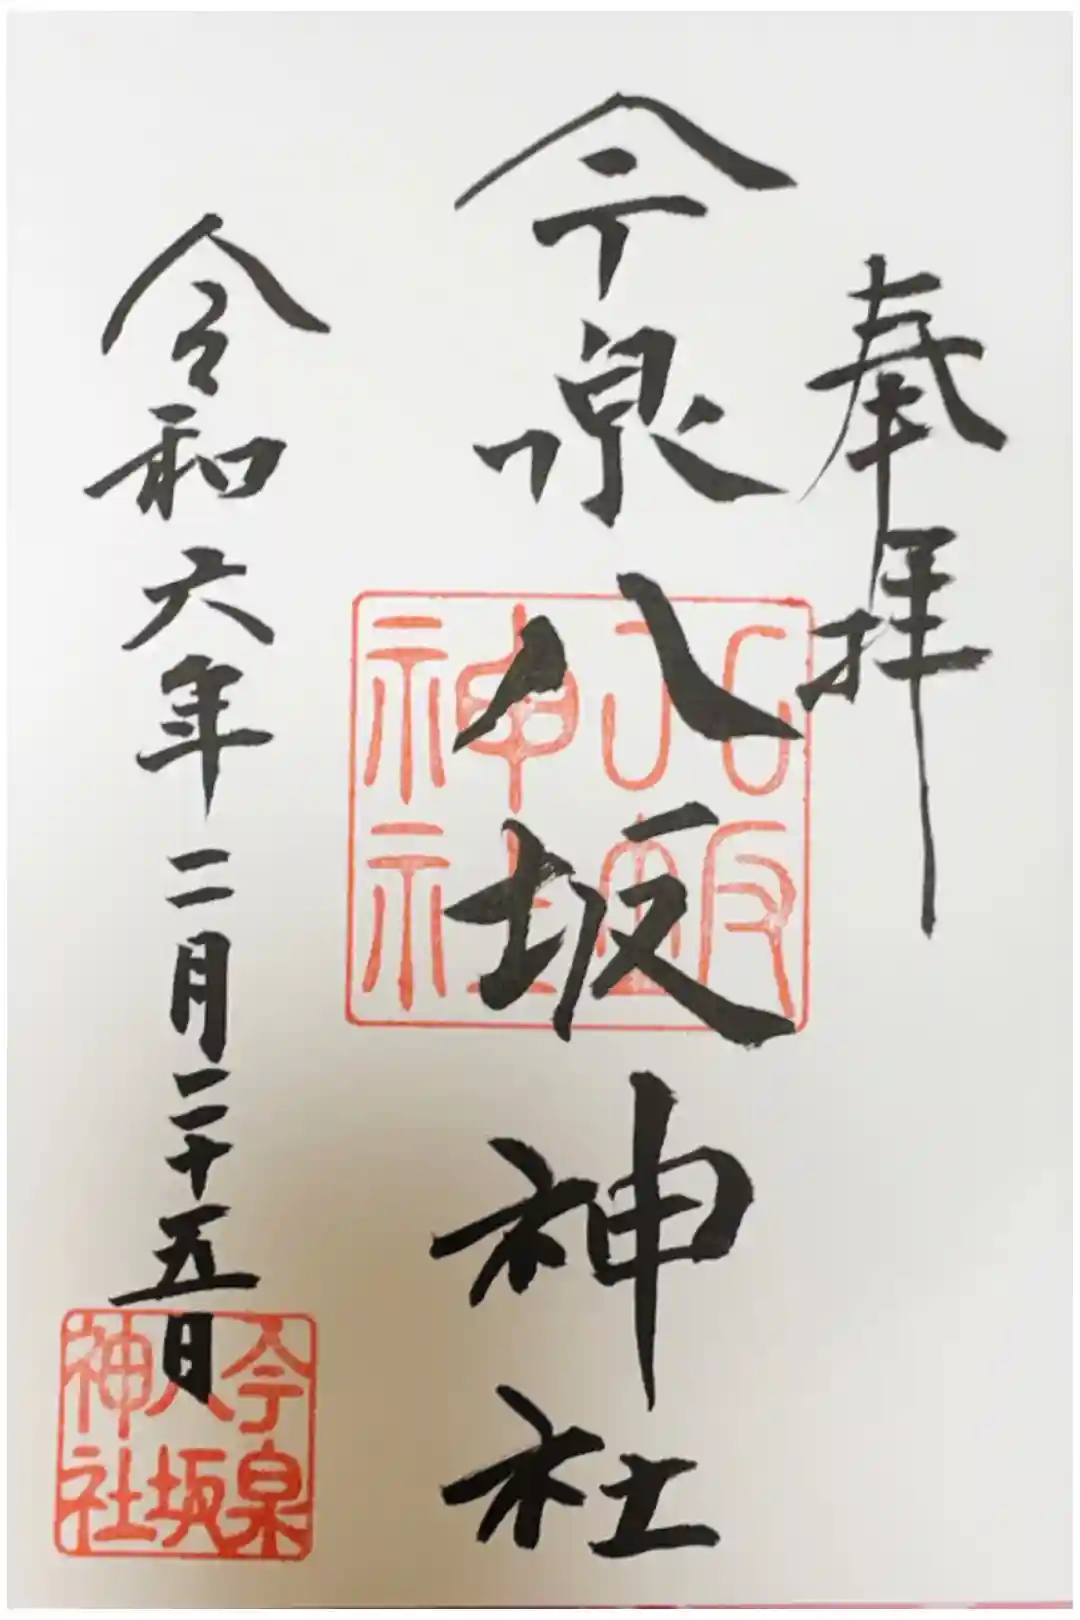 奉拝
今泉八坂神社
令和六年二月二十五日
八坂
神社
今泉
八坂
神社